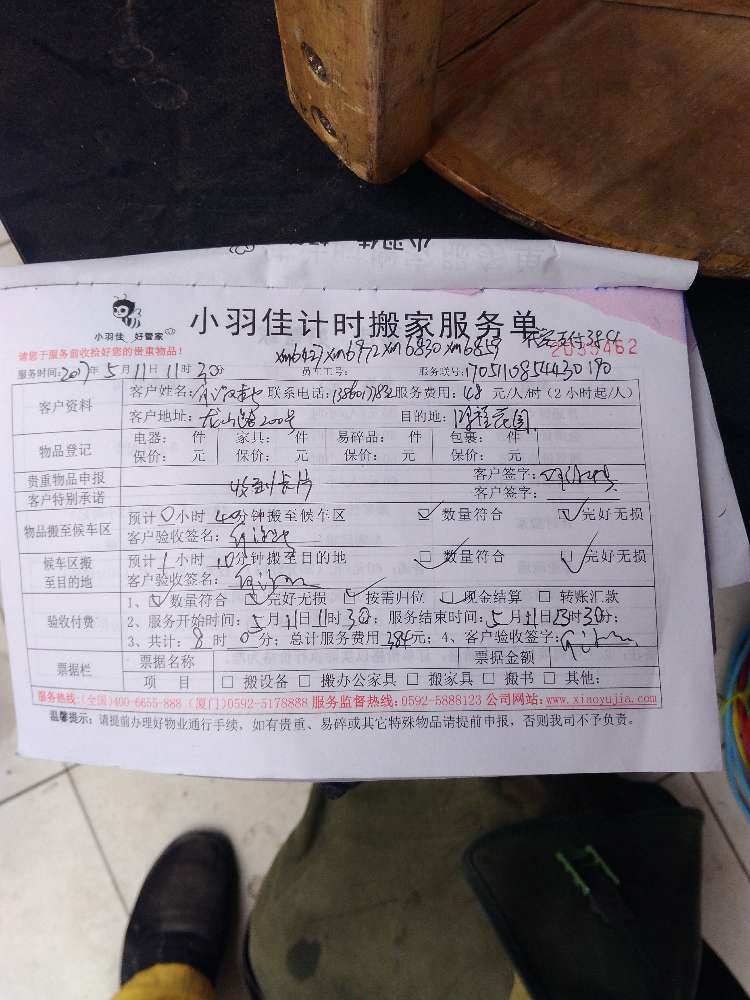 小羽佳 好管家
小羽佳计时搬家服务单
请您于服务前收捡好您的贵重物品!
xm6427xm6972xm6830xm6859
2033462
服务时间:2017年5月11日11时30分 员工工号: 服务联号:1705110854430190
客户资料 客户姓名: 联系电话: 服务费用:48 元/人/时(2小时起/人)
客户地址:龙山路200号 目的地: 花园
物品登记 电器: 件 家具: 件 易碎品: 件 包裹: 件
保价: 元 保价: 元 保价: 元 保价: 元
贵重物品申报 收到卡片 客户签字:
客户特别承诺 客户签字:
物品搬至候车区 预计0小时40分钟搬至候车区 数量符合 完好无损
客户验收签名:
候车区搬至目的地 预计1小时10分钟搬至目的地 数量符合 完好无损
客户验收签名:
验收付费 1、数量符合 完好无损 按需归位 现金结算 转账汇款
2、服务开始时间:5月11日11时30分;服务结束时间:5月11日13时30分;
3、共计:8时0分;总计服务费用384元;4、客户验收签字:
票据栏 票据名称 票据金额
项目 搬设备 搬办公家具 搬家具 搬书 其他:
服务热线:(全国)400-6655-888 (厦门)0592-5178888 服务监督热线:0592-5888123 公司网站:www.xiaoyujia.com
温馨提示:请提前办理好物业通行手续,如有贵重、易碎或其它特殊物品请提前申报,否则我司不予负责。